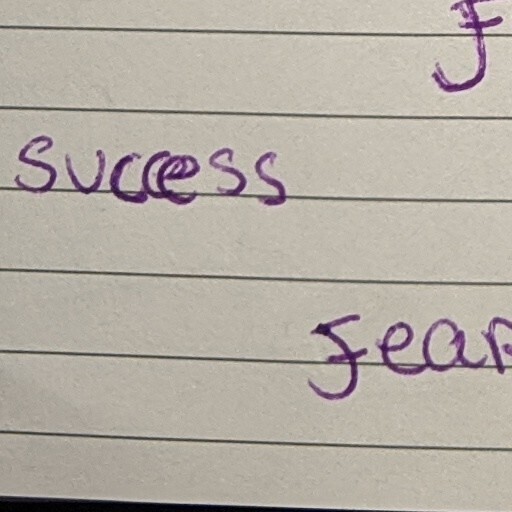 success
fear